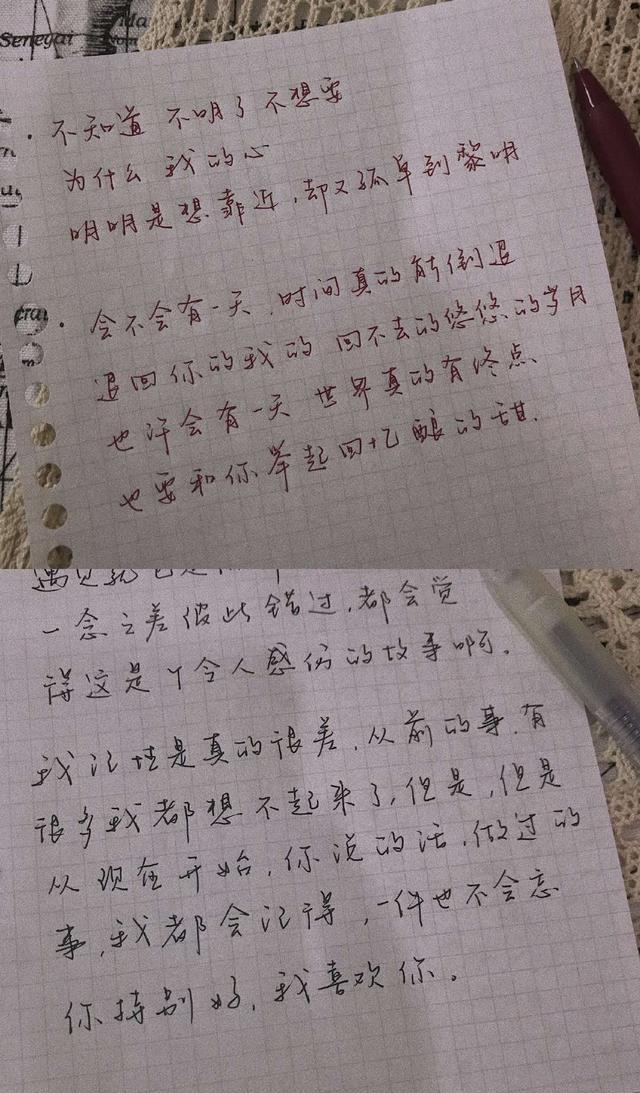 Senegal
· 不知道 不明了 不想要
为什么 我的心
明明是想靠近,却又孤单到黎明
· 会不会有一天,时间真的能倒退
退回你的我的 回不去的悠悠的岁月
也许会有一天 世界真的有终点
也要和你举起回忆酿的甜.
一念之差彼此错过,都会觉
得这是个令人感伤的故事啊。
我记性是真的很差,从前的事,有
很多我都想不起来了,但是,但是
从现在开始,你说的话,做过的
事,我都会记得,一件也不会忘
你特别好,我喜欢你。